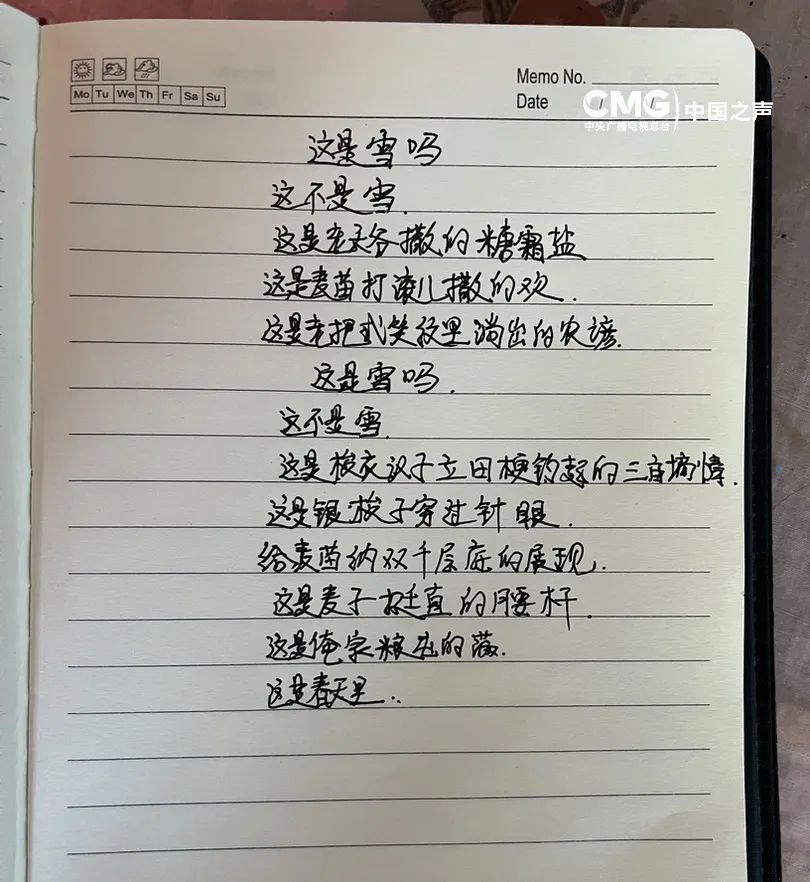 Memo No.
Mo Tu We Th Fr Sa Su
Date / /
CMG 中国之声
中央广播电视总台
这是雪吗
这不是雪.
这是老天爷撒的糖霜盐
这是麦苗打滚儿撒的欢.
这是老把式笑纹里淌出的农谚.
这是雪吗.
这不是雪.
这是 田埂 的三
这是银梭子穿过针眼.
给麦苗纳双千层底的展现.
这是麦子挺直的腰杆.
这是俺家粮 的
这是春天里..